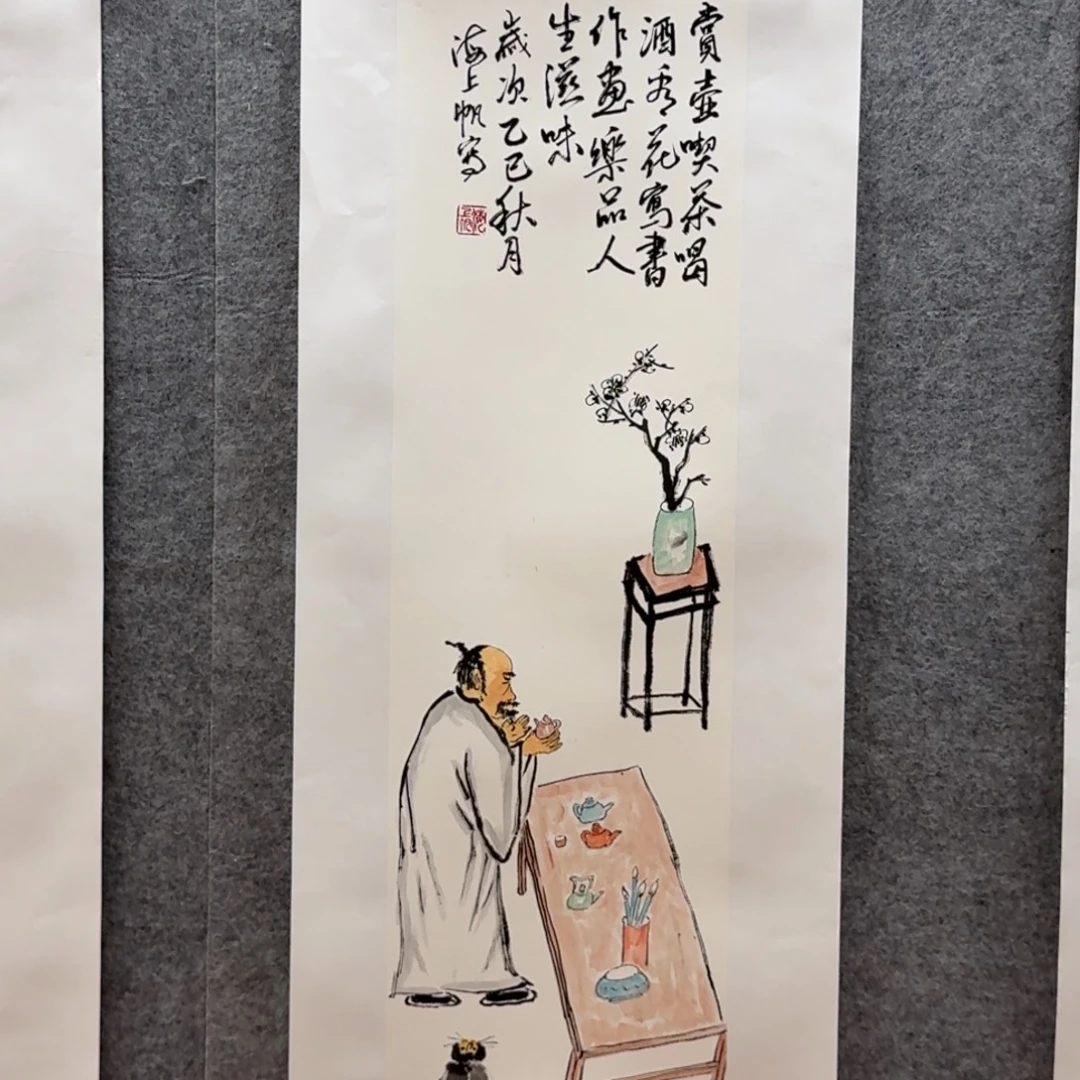 賞壺喫茶喝
酒看花寫書
作畫樂品人
生滋味
歲次乙巳秋月
海上帆寫